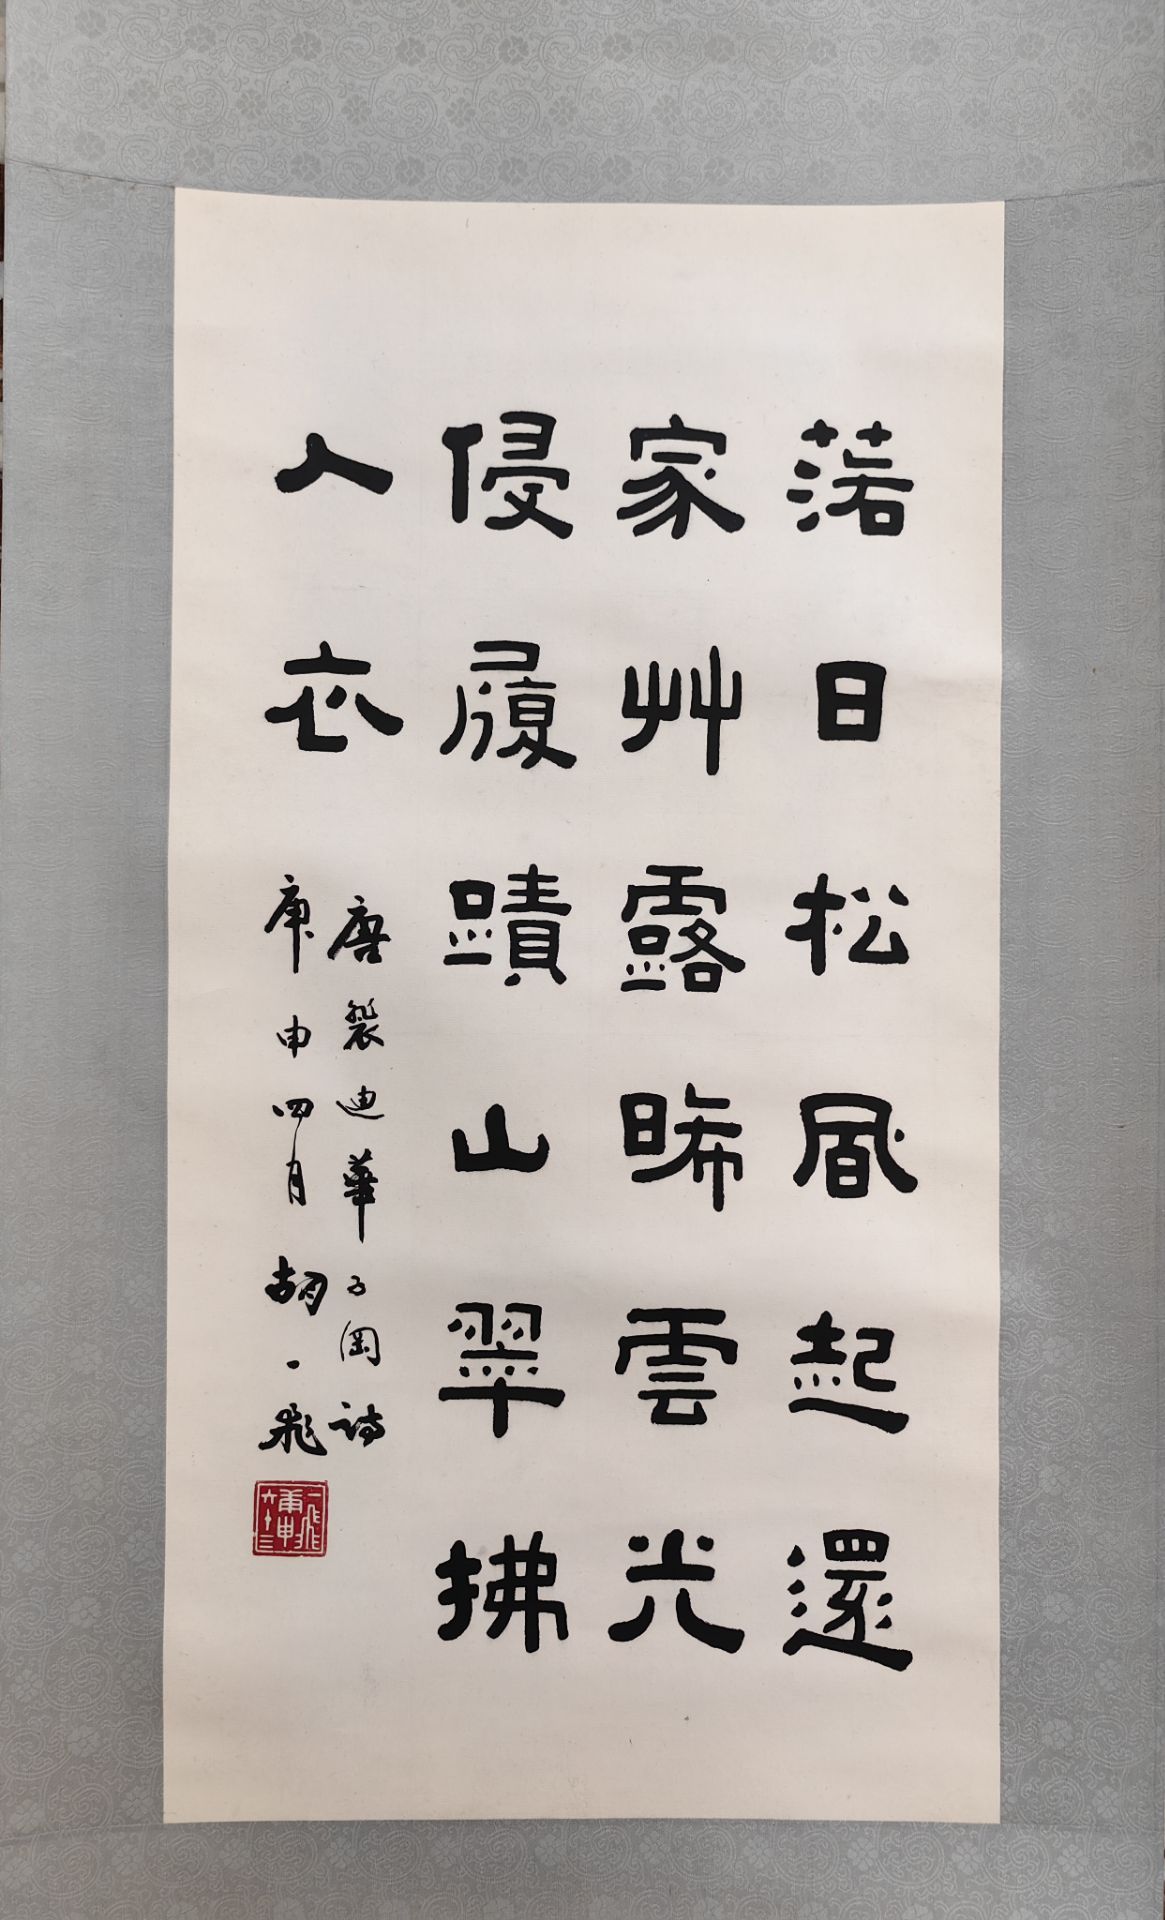 落日松風起還
家艸露晞雲光
侵履蹟山翠拂
人衣
唐裴迪華子岡詩
庚申四月胡一飛
一飛
庚申
六十三